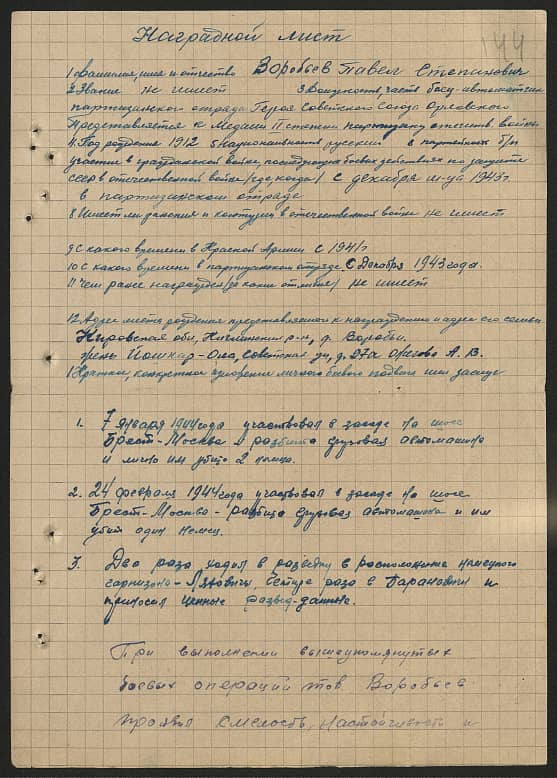 144
Наградной лист
1 Фамилия, имя и отчество Воробьев Павел Степанович
2 Звание не имеет 3 Должность, часть боец-автоматчик
партизанского отряда Героя Советского Союза Орловского
Представляется к Медали II степени партизану отечеств. войны
4. Год рождения 1912 5 Национальность русский 6 партийность б/п
участие в гражданской войне, последующих боевых действиях по защите
СССР в отечественной войне /где, когда/ с декабря м-ца 1943г
в партизанском отряде
8 Имеет ли ранения и контузии в отечественной войне не имеет
9 С какого времени в Красной Армии с 1941г
10 С какого времени в партизанском отряде С Декабря 1943 года.
11 Чем ранее награжден /за какие отличия/ не имеет
12 Адрес места рождения представляемого к награждению и адрес его семьи
Кировская обл, р-н, д. Воробьи.
Йошкар-Ола, Советская ул, д. 27а А. В.
Краткое, конкретное изложение личного боевого подвига или заслуг
1. 7 января 1944 года участвовал в засаде на шоссе
Брест-Москва разбита грузовая автомашина
и лично им убито 2 немца.
2. 24 февраля 1944 года участвовал в засаде на шоссе
Брест-Москва - разбита грузовая автомашина и им
убит один немец.
3. Два раза ходил в разведку в расположение немецкого
гарнизона - Ляховичи, четыре раза в Барановичи и
приносил ценные развед-данные.
При выполнении вышеупомянутых
боевых операций тов. Воробьев
проявил смелость, настойчивость и